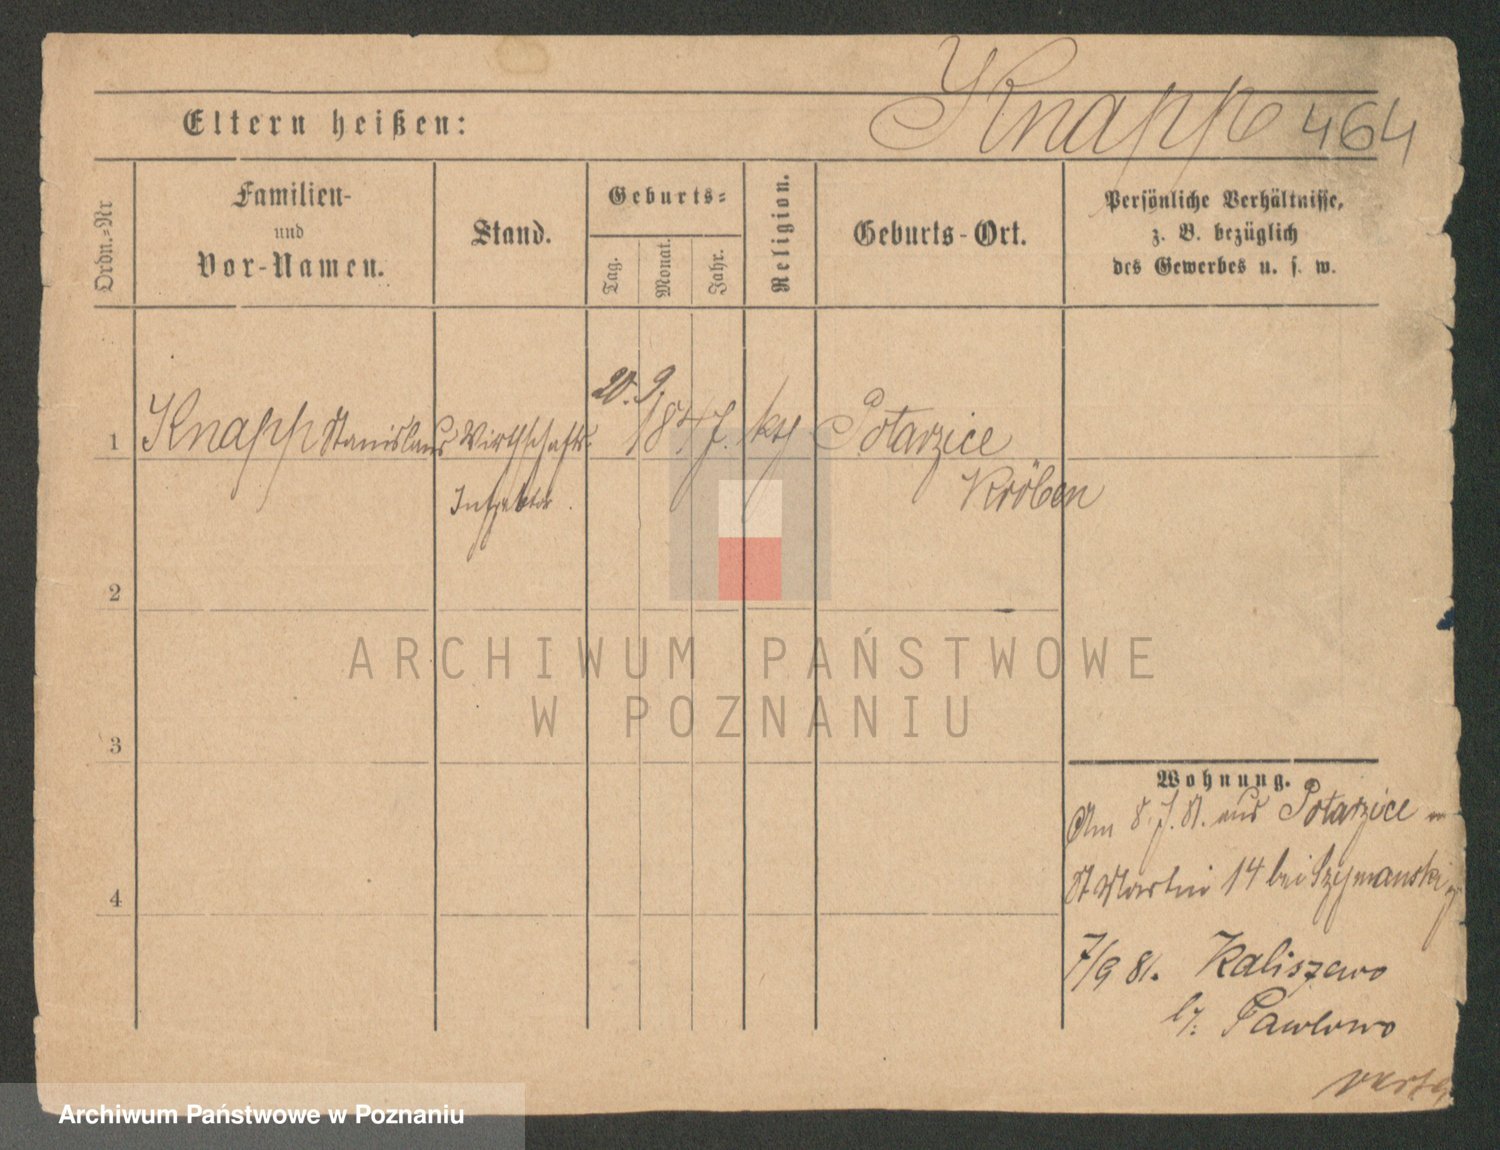 Knapp 464
Eltern heißen:
Ordn.=Nr
Familien-
und
Vor-Namen.
Stand.
Geburts=
Tag.
Monat.
Jahr.
Religion.
Geburts-Ort.
Persönliche Verhältnisse,
z. B. bezüglich
des Gewerbes u. s. w.
20. 9.
1 Knapp Stanislaus Wirthschafts- 1847. kth Potarzice
Inspektor. Kröben
2
3
4
ARCHIWUM PAŃSTWOWE
W POZNANIU
Wohnung.
Am 8. aus Potarzice
St Martin 14 bei Szymanski
7/9 81. Kaliszewo
b/: Pawlowo
Archiwum Państwowe w Poznaniu